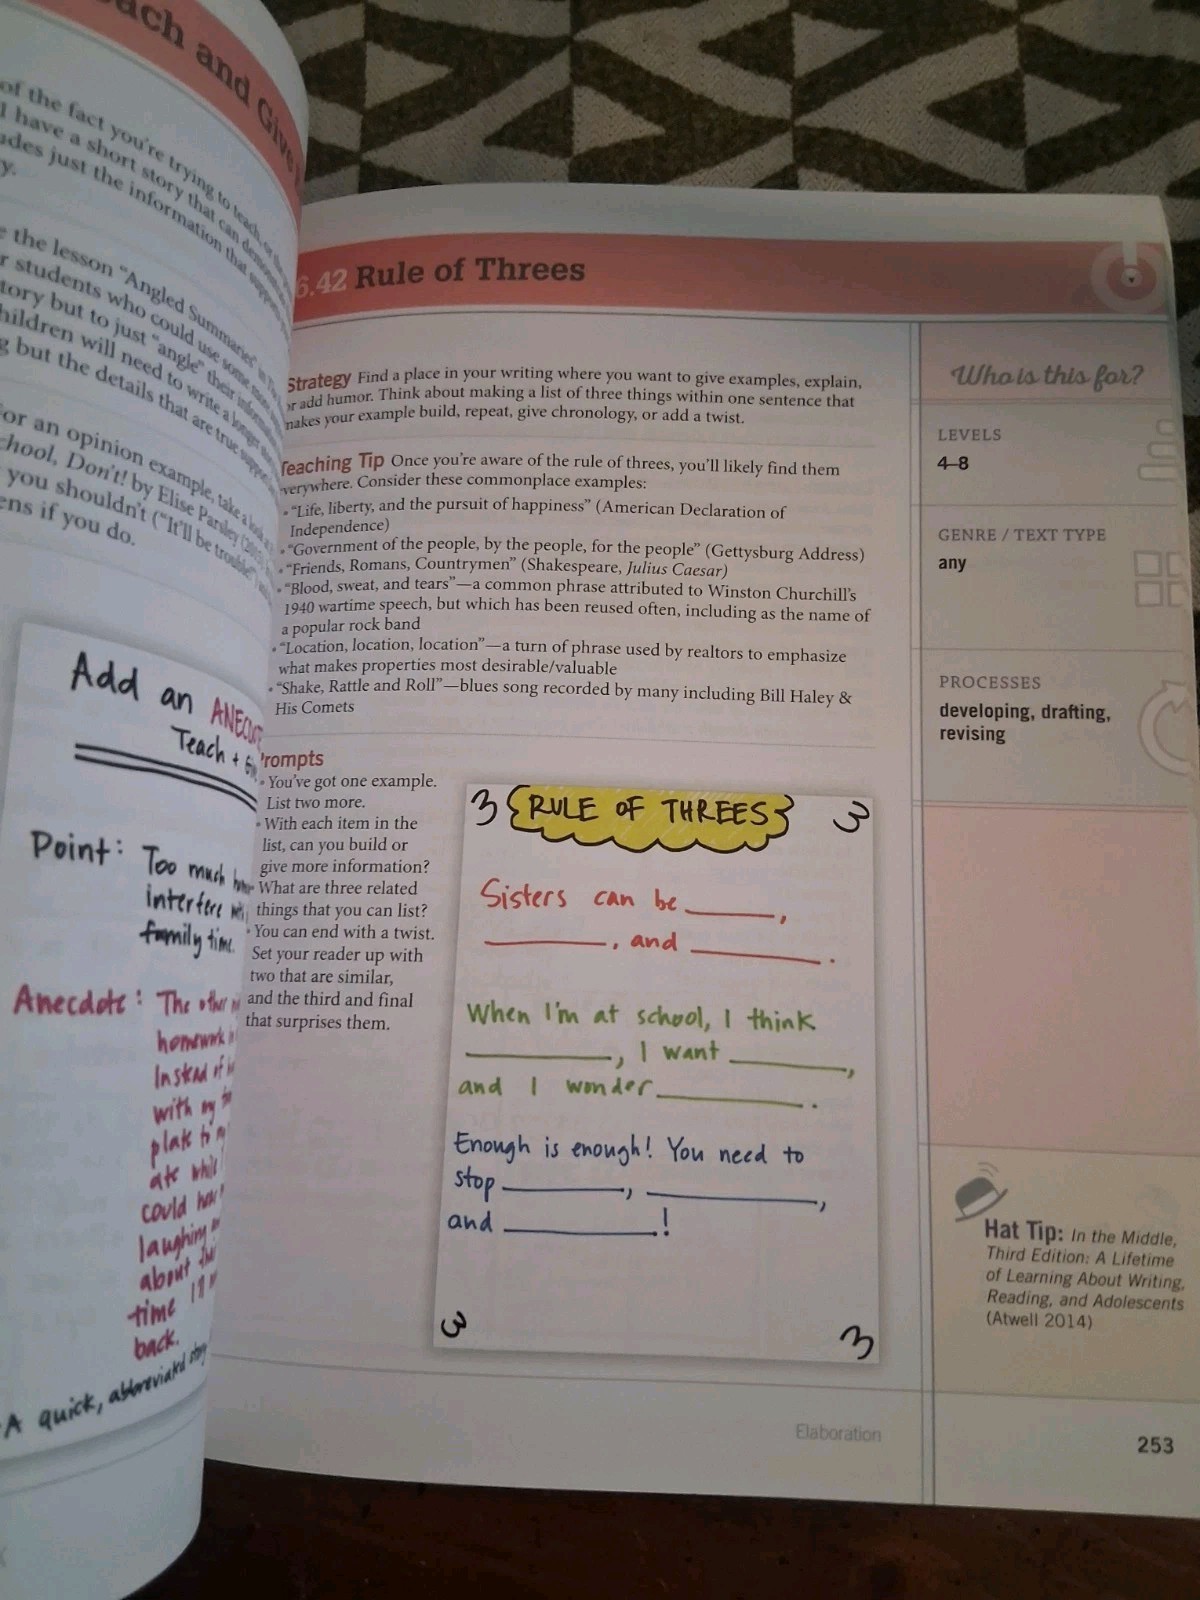 ach and Give
of the fact you're trying to teach, or the
I have a short story that can demonstrate
udes just the information that supports
y.
e the lesson "Angled Summaries" in The
r students who could use some more
tory but to just "angle" their information
hildren will need to write a longer
g but the details that are true
or an opinion example, take a look at
chool, Don't! by Elise Parsley
you shouldn't ("It'll be trouble")
ens if you do.
Add an ANECDOTE
Teach +
Point: Too much
interfere
family time.
Anecdote: The other
homework
Instead of
with my
plate to my
ate while
could hear
laughing
about
time I'll
back.
A quick, abbreviated story
6.42 Rule of Threes
Strategy Find a place in your writing where you want to give examples, explain,
or add humor. Think about making a list of three things within one sentence that
makes your example build, repeat, give chronology, or add a twist.
Teaching Tip Once you're aware of the rule of threes, you'll likely find them
everywhere. Consider these commonplace examples:
• "Life, liberty, and the pursuit of happiness" (American Declaration of
Independence)
• "Government of the people, by the people, for the people" (Gettysburg Address)
• "Friends, Romans, Countrymen" (Shakespeare, Julius Caesar)
• "Blood, sweat, and tears"—a common phrase attributed to Winston Churchill's
1940 wartime speech, but which has been reused often, including as the name of
a popular rock band
• "Location, location, location"—a turn of phrase used by realtors to emphasize
what makes properties most desirable/valuable
• "Shake, Rattle and Roll"—blues song recorded by many including Bill Haley &
His Comets
Prompts
• You've got one example.
List two more.
• With each item in the
list, can you build or
give more information?
• What are three related
things that you can list?
• You can end with a twist.
Set your reader up with
two that are similar,
and the third and final
that surprises them.
3 RULE OF THREES 3
Sisters can be ______,
______, and ______.
When I'm at school, I think
______, I want ______,
and I wonder ______.
Enough is enough! You need to
stop ______, ______,
and ______!
3 3
Who is this for?
LEVELS
4–8
GENRE / TEXT TYPE
any
PROCESSES
developing, drafting,
revising
Hat Tip: In the Middle,
Third Edition: A Lifetime
of Learning About Writing,
Reading, and Adolescents
(Atwell 2014)
Elaboration
253